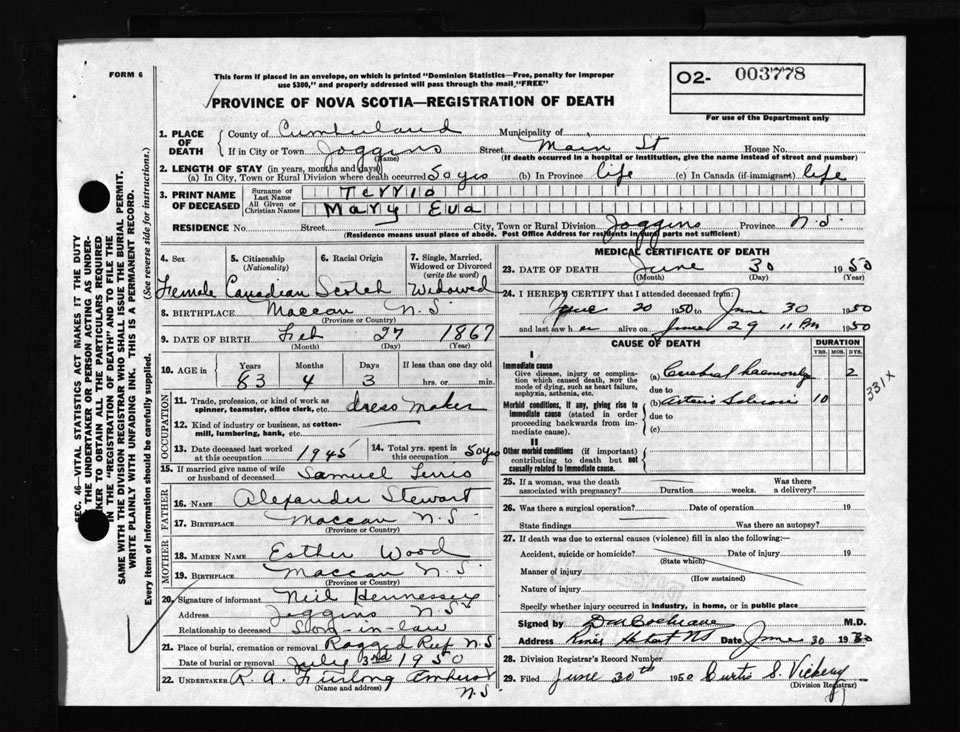 FORM 6
This form if placed in an envelope, on which is printed "Dominion Statistics—Free, penalty for improper
use $300," and properly addressed will pass through the mail "FREE"
O2- 003778
For use of the Department only
PROVINCE OF NOVA SCOTIA—REGISTRATION OF DEATH
1. PLACE OF DEATH County of Cumberland Municipality of
If in City or Town Joggins (Name) Street Main St House No.
(If death occurred in a hospital or institution, give the name instead of street and number)
2. LENGTH OF STAY (in years, months and days)
(a) In City, Town or Rural Division where death occurred 50 yrs (b) In Province life (c) In Canada (if immigrant) life
3. PRINT NAME OF DECEASED
Surname or Last Name Terrio
All Given or Christian Names Mary Eva
RESIDENCE No. Street City, Town or Rural Division Joggins Province N.S.
(Residence means usual place of abode. Post Office Address for residents in rural parts not sufficient)
4. Sex Female
5. Citizenship (Nationality) Canadian
6. Racial Origin Scotch
7. Single, Married, Widowed or Divorced (write the word) Widowed
8. BIRTHPLACE Maccan N.S.
(Province or Country)
9. DATE OF BIRTH Feb 27 1867
(Month) (Day) (Year)
10. AGE in Years Months Days If less than one day old
83 4 3 hrs. or min.
OCCUPATION
11. Trade, profession, or kind of work as spinner, teamster, office clerk, etc. dress maker
12. Kind of industry or business, as cotton-mill, lumbering, bank, etc.
13. Date deceased last worked at this occupation 1945
14. Total yrs. spent in this occupation 50 yrs
15. If married give name of wife or husband of deceased Samuel Terrio
FATHER
16. NAME Alexander Stewart
17. BIRTHPLACE Maccan N.S.
(Province or Country)
MOTHER
18. MAIDEN NAME Esther Wood
19. BIRTHPLACE Maccan N.S.
(Province or Country)
20. Signature of informant Neil Hennessey
Address Joggins N.S.
Relationship to deceased Son-in-law
21. Place of burial, cremation or removal Ragged Reef N.S
Date of burial or removal July 3rd 1950
22. UNDERTAKER R. A. Furlong Amherst N.S
(Name and address)
MEDICAL CERTIFICATE OF DEATH
23. DATE OF DEATH June 30 1950
(Month) (Day)
24. I HEREBY CERTIFY that I attended deceased from:
June 20 1950 to June 30 1950
and last saw h er alive on June 29 11 Pm 1950
CAUSE OF DEATH
DURATION
YRS. MOS. DYS.
I
Immediate cause
Give disease, injury or complication which caused death, not the mode of dying, such as heart failure, asphyxia, asthenia, etc.
(a) Cerebral haemorrhage 2
due to
331X
Morbid conditions, if any, giving rise to immediate cause (stated in order proceeding backwards from immediate cause).
(b) Arterio Sclerosis 10
due to
(c)
II
Other morbid conditions (if important) contributing to death but not causally related to immediate cause.
25. If a woman, was the death associated with pregnancy? Duration weeks. Was there a delivery?
26. Was there a surgical operation? Date of operation 19
State findings Was there an autopsy?
27. If death was due to external causes (violence) fill in also the following:—
Accident, suicide or homicide? Date of injury 19
(State which)
Manner of injury
(How sustained)
Nature of injury
Specify whether injury occurred in industry, in home, or in public place
Signed by Cochrane M.D.
Address River Hebert NS Date June 30 1950
28. Division Registrar's Record Number
29. Filed June 30th 1950 Curtis S. Vickery
(Division Registrar)
SEC. 46—VITAL STATISTICS ACT MAKES IT THE DUTY
OF THE UNDERTAKER OR PERSON ACTING AS UNDER-
TAKER TO OBTAIN ALL THE PARTICULARS REQUIRED
IN THE "REGISTRATION OF DEATH" AND TO FILE THE
SAME WITH THE DIVISION REGISTRAR WHO SHALL ISSUE THE BURIAL PERMIT.
WRITE PLAINLY WITH UNFADING INK. THIS IS A PERMANENT RECORD.
Every item of information should be carefully supplied. (See reverse side for instructions.)